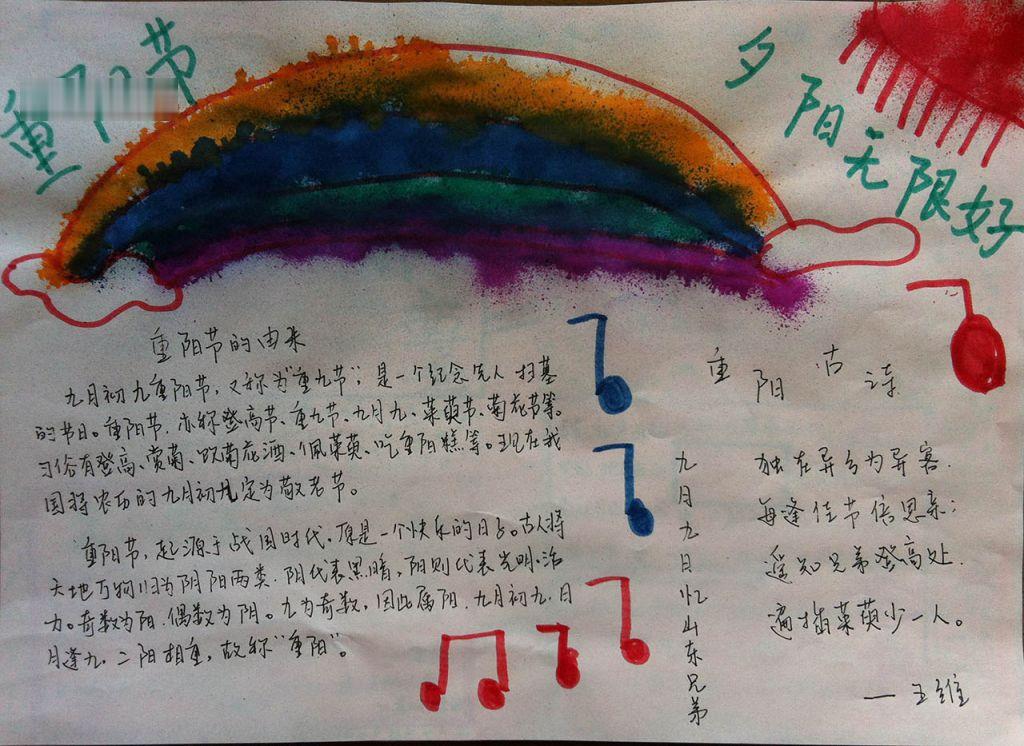 重阳节
夕阳无限好
重阳节的由来
九月初九重阳节,又称为“重九节”,是一个纪念先人扫墓
的节日。重阳节,亦称登高节、重九节、九月九、茱萸节、菊花节等。
习俗有登高、赏菊、饮菊花酒、佩茱萸、吃重阳糕等。现在我
国将农历的九月初九定为敬老节。
重阳节,起源于战国时代,原是一个快乐的日子。古人将
天地万物归为阴阳两类,阴代表黑暗,阳则代表光明、活
力。奇数为阳,偶数为阴。九为奇数,因此属阳,九月初九,日
月逢九,二阳相重,故称“重阳”。
重阳古诗
九月九日忆山东兄弟
独在异乡为异客,
每逢佳节倍思亲;
遥知兄弟登高处,
遍插茱萸少一人。
—王维